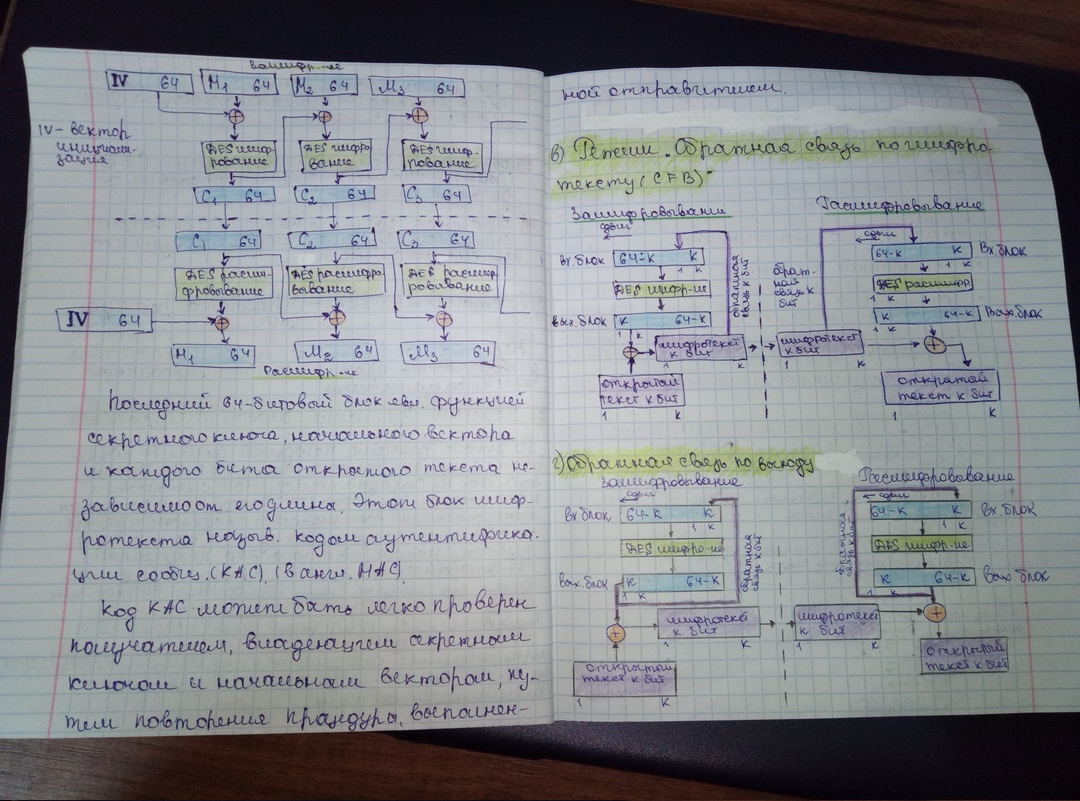 Зашифр-ие
IV 64 M₁ 64 M₂ 64 M₃ 64
IV - вектор
инициали-
зация
AES шиф-
рование
AES шифр-
вание
AES шиф-
рование
C₁ 64 C₂ 64 C₃ 64
C₁ 64 C₂ 64 C₃ 64
AES расши-
фровывание
AES расшифро-
вывание
AES расшиф-
ровывание
IV 64
M₁ 64 M₂ 64 M₃ 64
Расшифр-ие
Последний 64-битовый блок явл. функцией
секретного ключа, начального вектора
и каждого бита открытого текста не-
зависимо от его длины. Этот блок шиф-
ротекста назыв. кодом аутентифика-
ции сообщ. (КАС), (в англ. MAC).
Код КАС может быть легко проверен
получателем, владеющем секретным
ключом и начальным вектором, пу-
тем повторения процедура, выполнен-
ной отправителем.
в) Режим „Обратная связь по шифро-
тексту (CFB)"
Зашифровывани
сдвиг
вх. блок 64-к к
1 к
AES шифр-ие
вых. блок к 64-к
1 к
обратная
связь к бит
шифротекст
к бит
1 к
открытый
текст к бит
1 к
Расшифровывание
сдвиг
64-к к Вх. блок
1 к
AES расшифр
1 к
к 64-к Вых блок
обрат-
ная
связь к
бит
шифротекст
к бит
1 к
открытый
текст к бит
1 к
г) Обратная связь по выходу
Зашифровывание
сдвиг
вх блок 64-к к
1 к
AES шифро-ие
вых. блок к 64-к
1 к
обратная
связь к бит
шифротекст
к бит
1 к
открытый
текст к бит
1 к
Расшифровывание
сдвиг
64-к к Вх. блок
1 к
AES шифр-ие
к 64-к Вых. блок
1 к
обратная
связь к бит
шифротекст
к бит
1 к
открытый
текст к бит